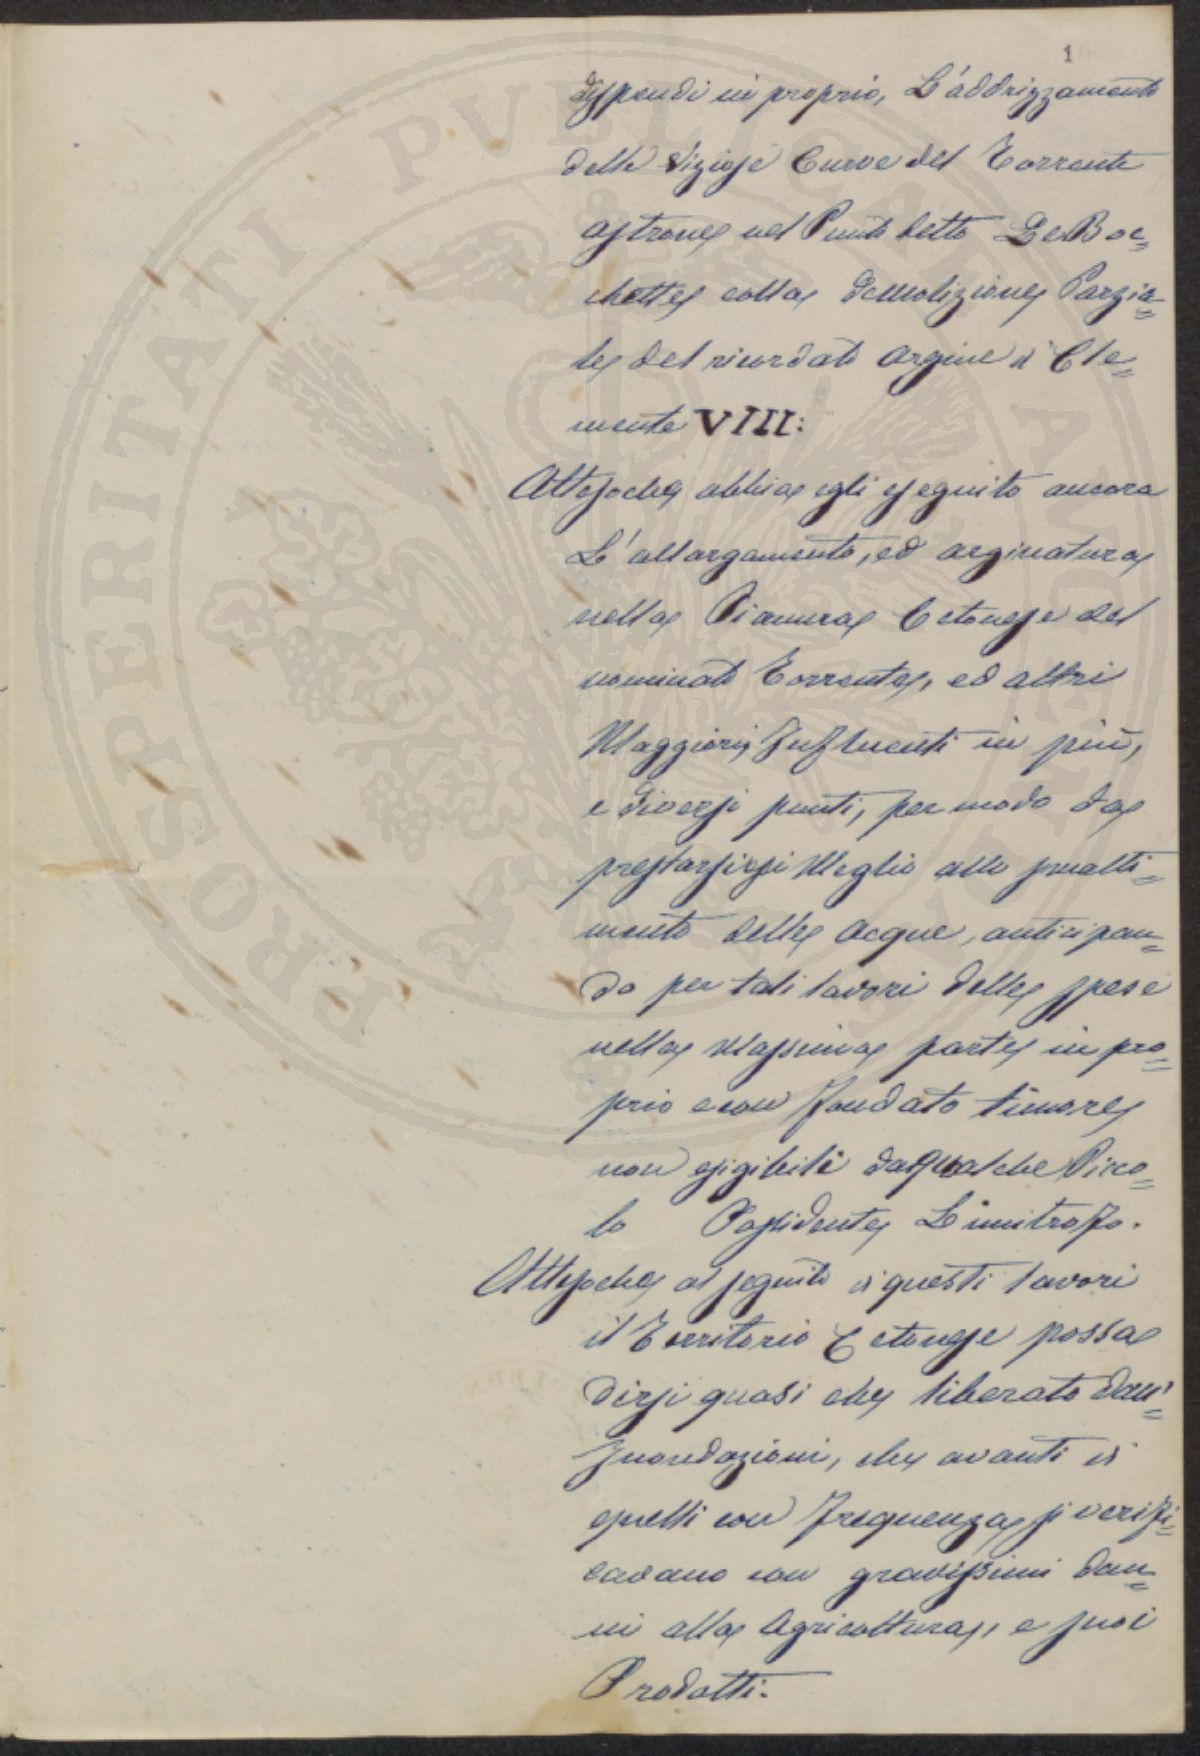 1
dispendi in proprio, L'addrizzamento
delle viziose Curve del Torrente
astrone nel Punto detto Le Boc=
chette colla demolizione Parzia=
le del ricordato argine di Cle=
mente VIII:
Attesoche abbia egli eseguito ancora
L'allargamento, ed arginatura
nella Pianura Cetonese del
nominato Torrente, ed altri
Maggiori Influenti in più,
e diversi punti, per modo da
prestarsi Meglio allo smalti=
mento delle acque, anticipan=
do per tali lavori delle spese
nella Massima parte in pro=
prio e con fondato timore
non esigibili da qualche Picco=
lo Possidente Limitrofo.
Attesoche al seguito di questi lavori
il Territorio Cetonese possa
dirsi quasi che liberato dall'=
Inondazioni, che avanti di
quelli con frequenza si verifi=
cavano con gravissimi dan=
ni alla Agricoltura, e suoi
Prodotti.
PROSPERITATI PUBLICAE